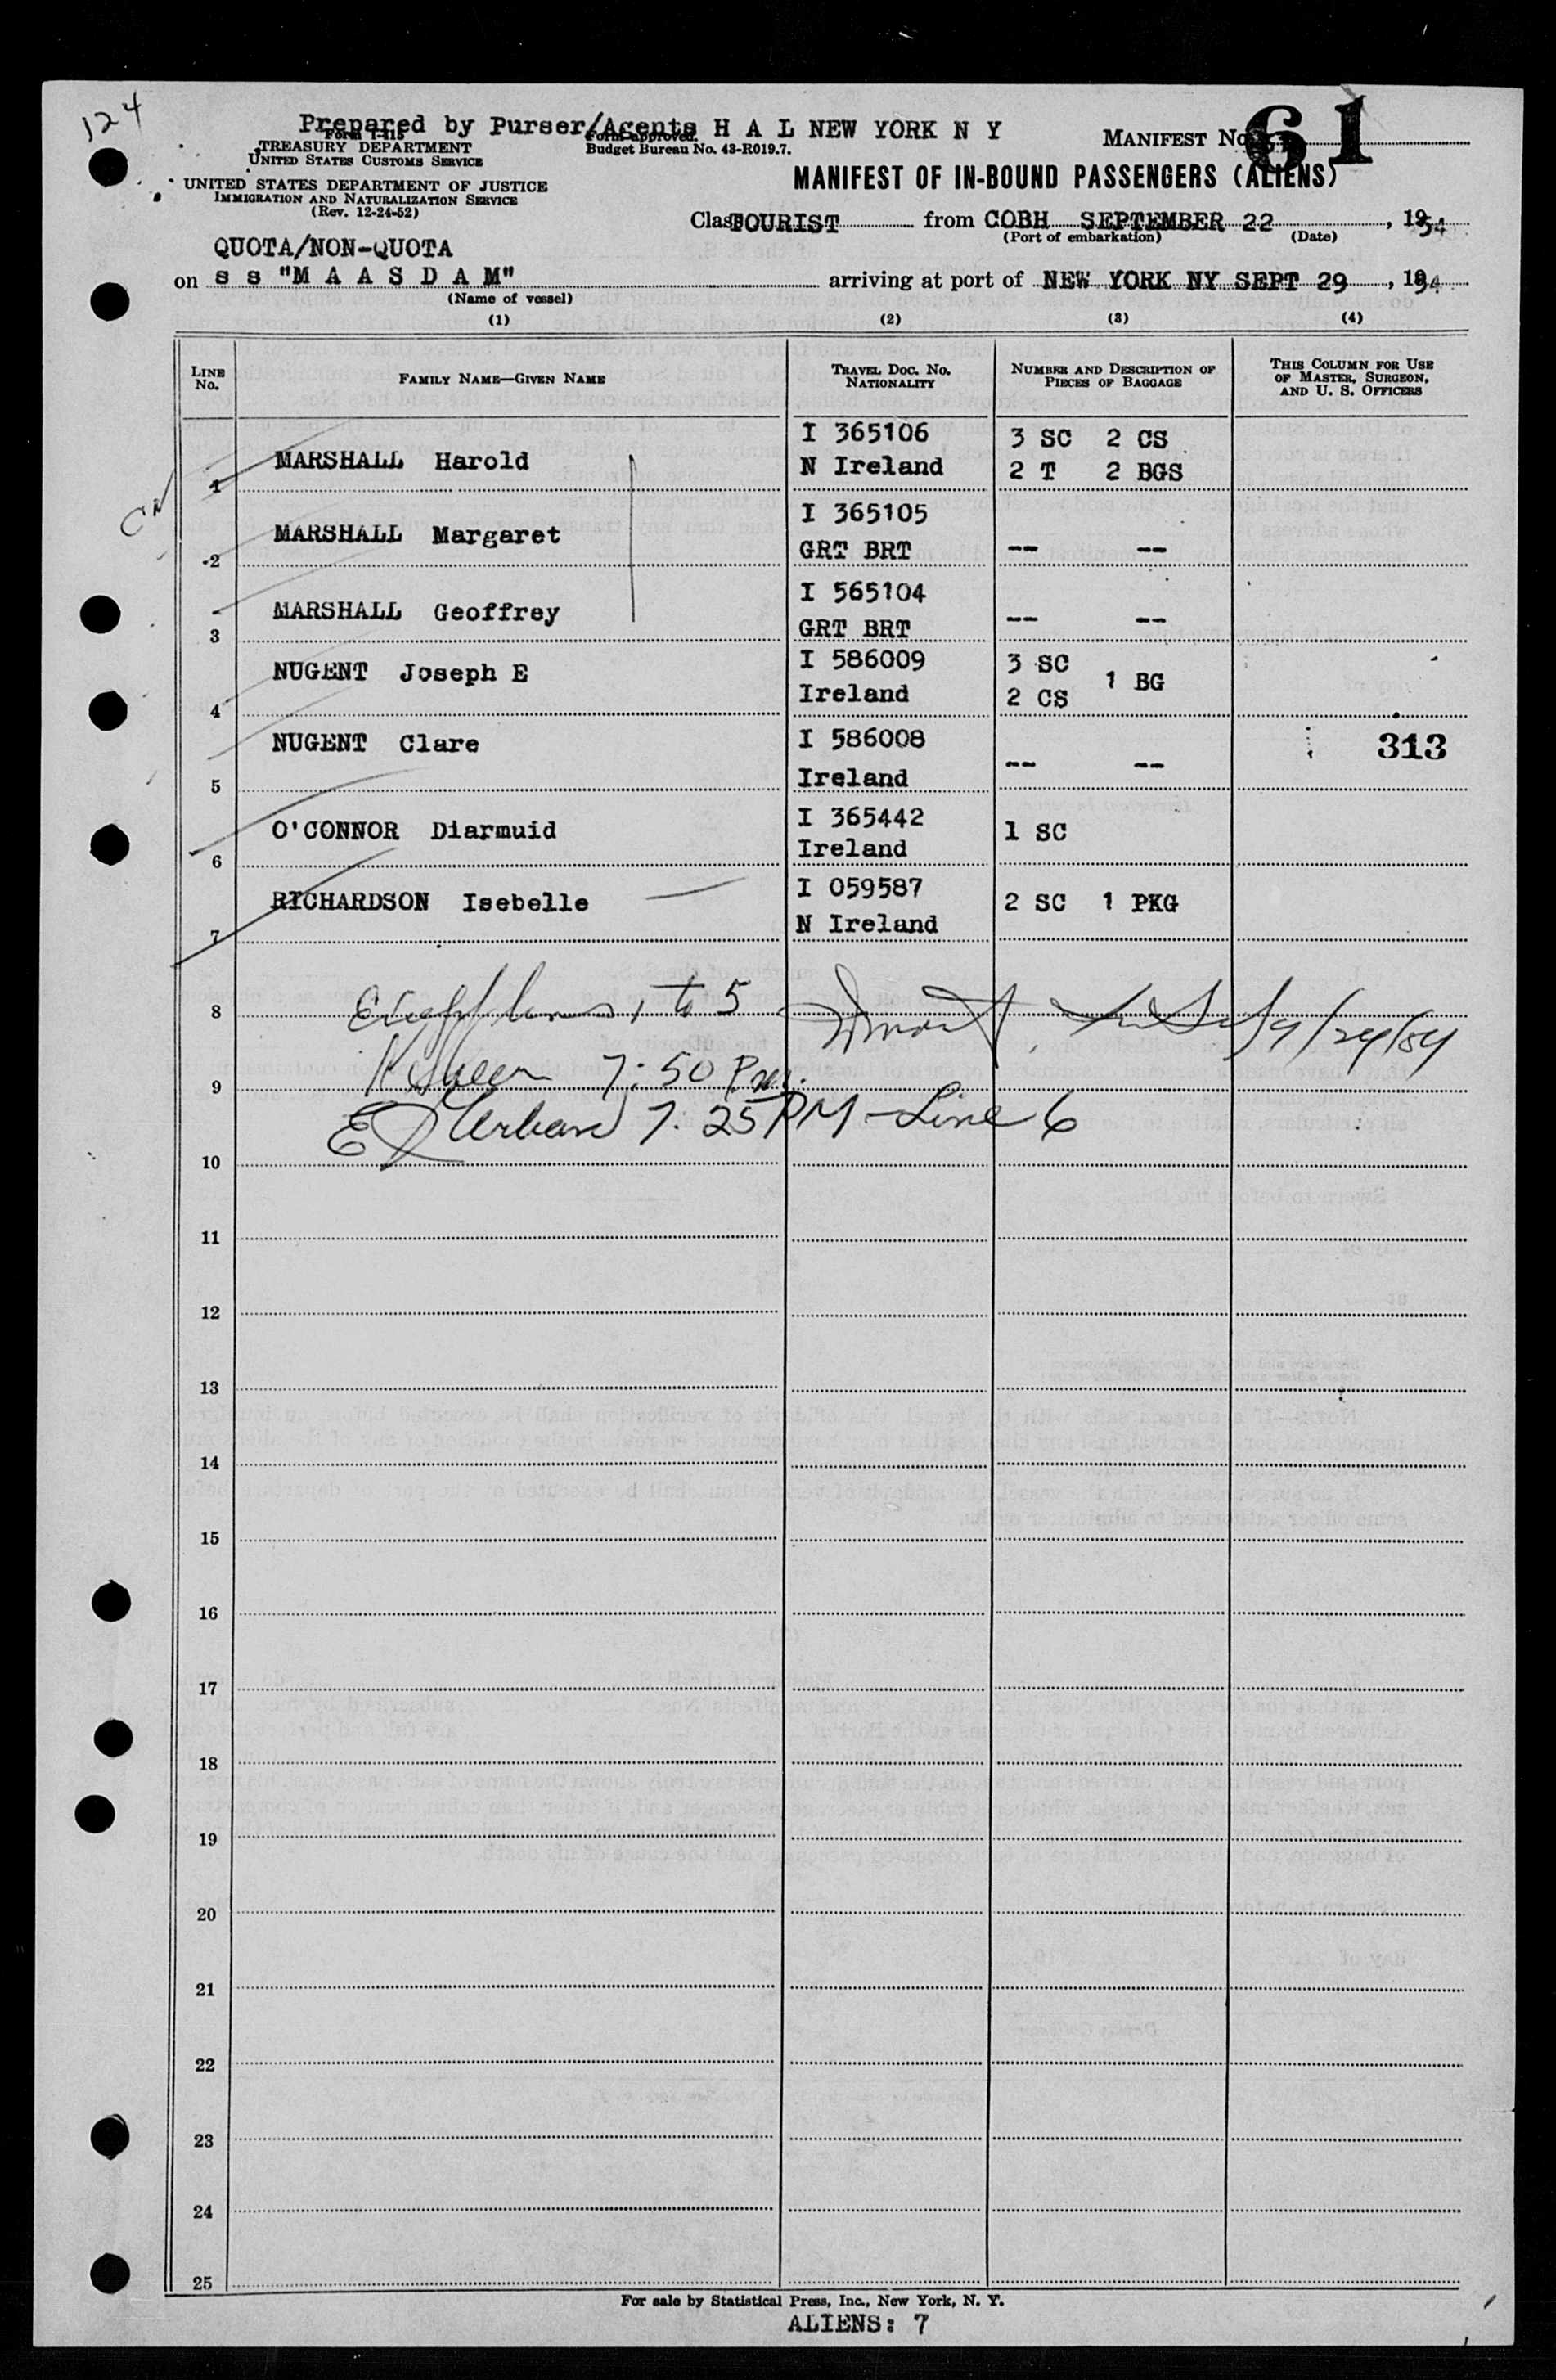 124
Prepared by Purser/Agents H A L NEW YORK N Y
Form I-415
TREASURY DEPARTMENT
UNITED STATES CUSTOMS SERVICE
Form approved.
Budget Bureau No. 43-R019.7.
MANIFEST No. 61
UNITED STATES DEPARTMENT OF JUSTICE
IMMIGRATION AND NATURALIZATION SERVICE
(Rev. 12-24-52)
MANIFEST OF IN-BOUND PASSENGERS (ALIENS)
Class TOURIST from COBH SEPTEMBER 22, 1954
(Port of embarkation) (Date)
QUOTA/NON-QUOTA
on s s "M A A S D A M" arriving at port of NEW YORK NY SEPT 29, 1954
(Name of vessel)
(1) (2) (3) (4)
LINE No. FAMILY NAME—GIVEN NAME TRAVEL DOC. No. NATIONALITY NUMBER AND DESCRIPTION OF PIECES OF BAGGAGE THIS COLUMN FOR USE OF MASTER, SURGEON, AND U. S. OFFICERS
1 MARSHALL Harold I 365106 N Ireland 3 SC 2 CS 2 T 2 BGS
2 MARSHALL Margaret I 365105 GRT BRT -- --
3 MARSHALL Geoffrey I 565104 GRT BRT -- --
4 NUGENT Joseph E I 586009 Ireland 3 SC 2 CS 1 BG
5 NUGENT Clare I 586008 Ireland -- -- 313
6 O'CONNOR Diarmuid I 365442 Ireland 1 SC
7 RICHARDSON Isebelle I 059587 N Ireland 2 SC 1 PKG
8 1 to 5
9 7:50 PM.
Urban 7:25 PM - Line 6
10
11
12
13
14
15
16
17
18
19
20
21
22
23
24
25
For sale by Statistical Press, Inc., New York, N. Y.
ALIENS: 7